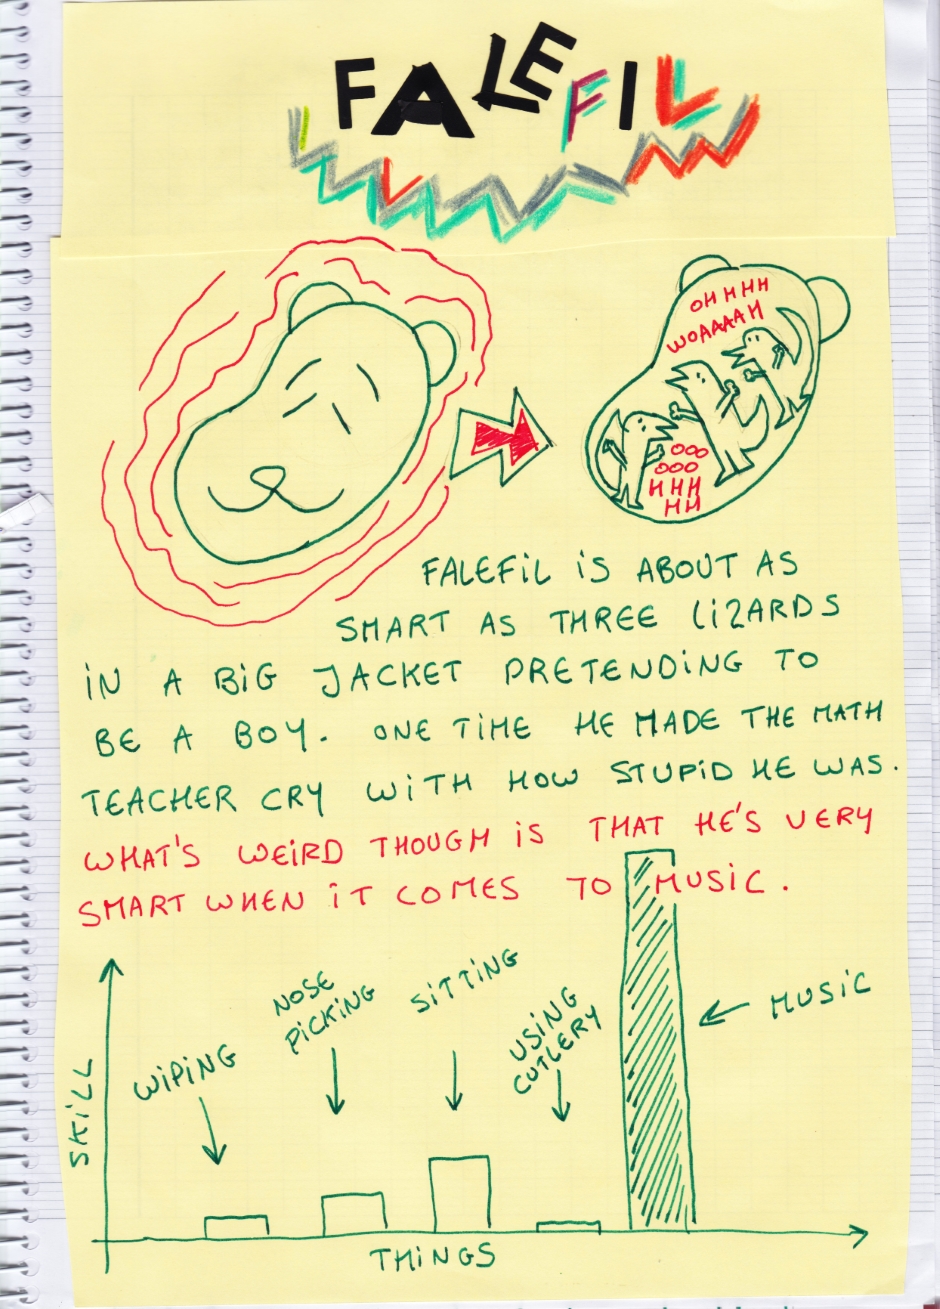 FALEFIL
OHHHH
WOAAAAH
OOO
OOO
HHH
HH
FALEFiL iS ABOUT AS
SMART AS THREE LiZARDS
iN A BiG JACKET PRETENDiNG TO
BE A BOY. ONE TiME HE MADE THE MATH
TEACHER CRY WiTH HOW STUPiD HE WAS.
WHAT'S WEiRD THOUGH iS THAT HE'S VERY
SMART WHEN iT COMES TO MUSiC.
SKiLL
WiPiNG
NOSE
PiCKiNG
SiTTiNG
USiNG
CUTLERY
MUSiC
THiNGS